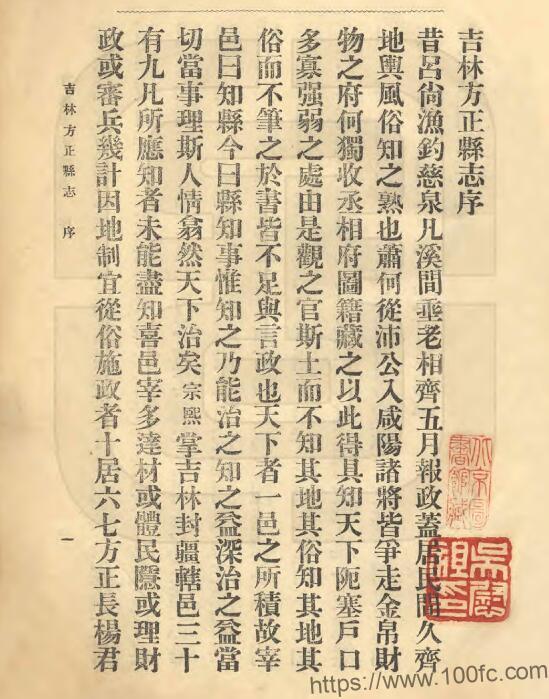 吉林方正縣志序
昔呂尙漁釣慈泉凡溪間垂老相齊五月報政蓋居民間久齊
地輿風俗知之熟也蕭何從沛公入咸陽諸將皆爭走金帛財
物之府何獨收丞相府圖籍藏之以此得具知天下阨塞戶口
多寡强弱之處由是觀之官斯土而不知其地其俗知其地其
俗而不筆之於書皆不足與言政也天下者一邑之所積故宰
邑曰知縣今曰縣知事惟知之乃能治之知之益深治之益當
切當事理斯人情翕然天下治矣宗熙掌吉林封疆轄邑三十
有九凡所應知者未能盡知喜邑宰多達材或體民隱或理財
政或審兵幾計因地制宜從俗施政者十居六七方正長楊君
吉林方正縣志 序
一
https://www.100fc.com